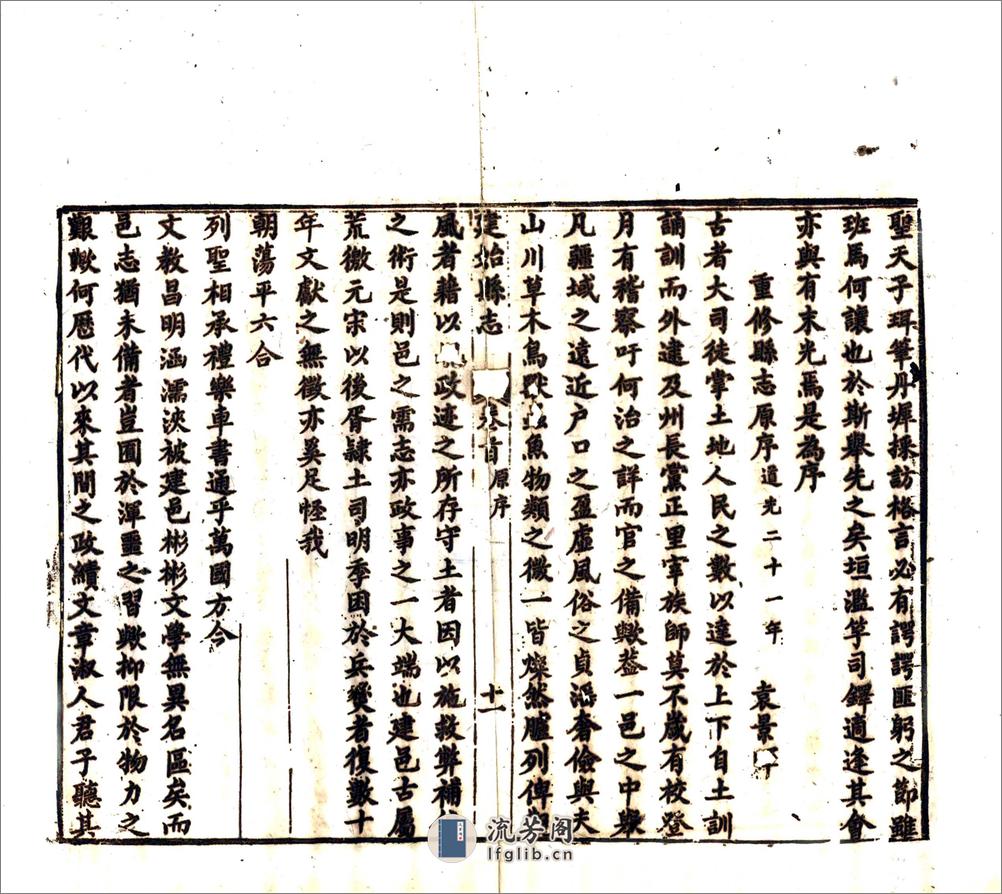 聖天子珥筆丹墀採訪格言必有諤諤匪躬之節雖
班馬何讓也於斯舉先之矣垣濫竽司鐸適逢其會
亦與有末光焉是為序
重修縣志原序道光二十一年 袁景
古者大司徒掌土地人民之數以達於上下自土訓
誦訓而外逮及州長黨正里宰族師莫不歲有校登
月有稽察吁何治之詳而官之備歟葢一邑之中舉
凡疆域之遠近户口之盈虛風俗之貞滛奢儉與夫
山川草木鳥魚物類之微一皆燦然臚列俾
建始縣志 卷首 原序 十一
風者藉以政迹之所存守土者因以施救弊補
之術是則邑之需志亦政事之一大端也建邑古屬
荒徼元宋以後胥隸土司明季困於兵燹者復數十
年文獻之無徵亦奚足怪我
朝蕩平六合
列聖相承禮樂車書通乎萬國方今
文教昌明涵濡浹被建邑彬彬文學無異名區矣而
邑志猶未備者豈囿於渾噩之習歟抑限於物力之
艱歟何歷代以來其間之政績文章淑人君子聽其
流芳阁
lfglib.cn